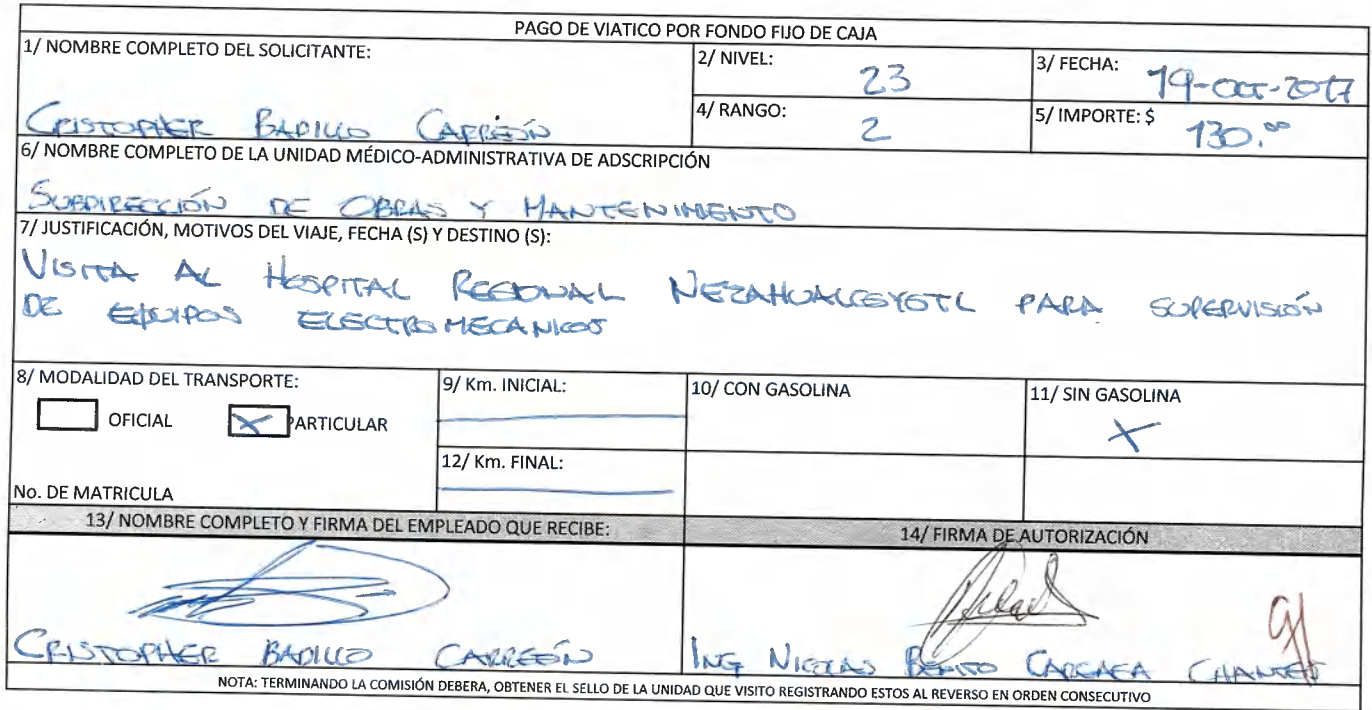 PAGO DE VIATICO POR FONDO FIJO DE CAJA
1/ NOMBRE COMPLETO DEL SOLICITANTE:
CRISTOPHER BADILLO CARREÓN
2/ NIVEL: 23
3/ FECHA: 19-OCT-2017
4/ RANGO: 2
5/ IMPORTE: $ 130.00
6/ NOMBRE COMPLETO DE LA UNIDAD MÉDICO-ADMINISTRATIVA DE ADSCRIPCIÓN
SUBDIRECCIÓN DE OBRAS Y MANTENIMIENTO
7/ JUSTIFICACIÓN, MOTIVOS DEL VIAJE, FECHA (S) Y DESTINO (S):
VISITA AL HOSPITAL REGIONAL NEZAHUALCOYOTL PARA SUPERVISIÓN
DE EQUIPOS ELECTROMECANICOS
8/ MODALIDAD DEL TRANSPORTE:
OFICIAL X PARTICULAR
No. DE MATRICULA
9/ Km. INICIAL:
10/ CON GASOLINA
11/ SIN GASOLINA
X
12/ Km. FINAL:
13/ NOMBRE COMPLETO Y FIRMA DEL EMPLEADO QUE RECIBE:
14/ FIRMA DE AUTORIZACIÓN
CRISTOPHER BADILLO CARREÓN
ING NICOLAS BENITO
NOTA: TERMINANDO LA COMISIÓN DEBERA, OBTENER EL SELLO DE LA UNIDAD QUE VISITO REGISTRANDO ESTOS AL REVERSO EN ORDEN CONSECUTIVO